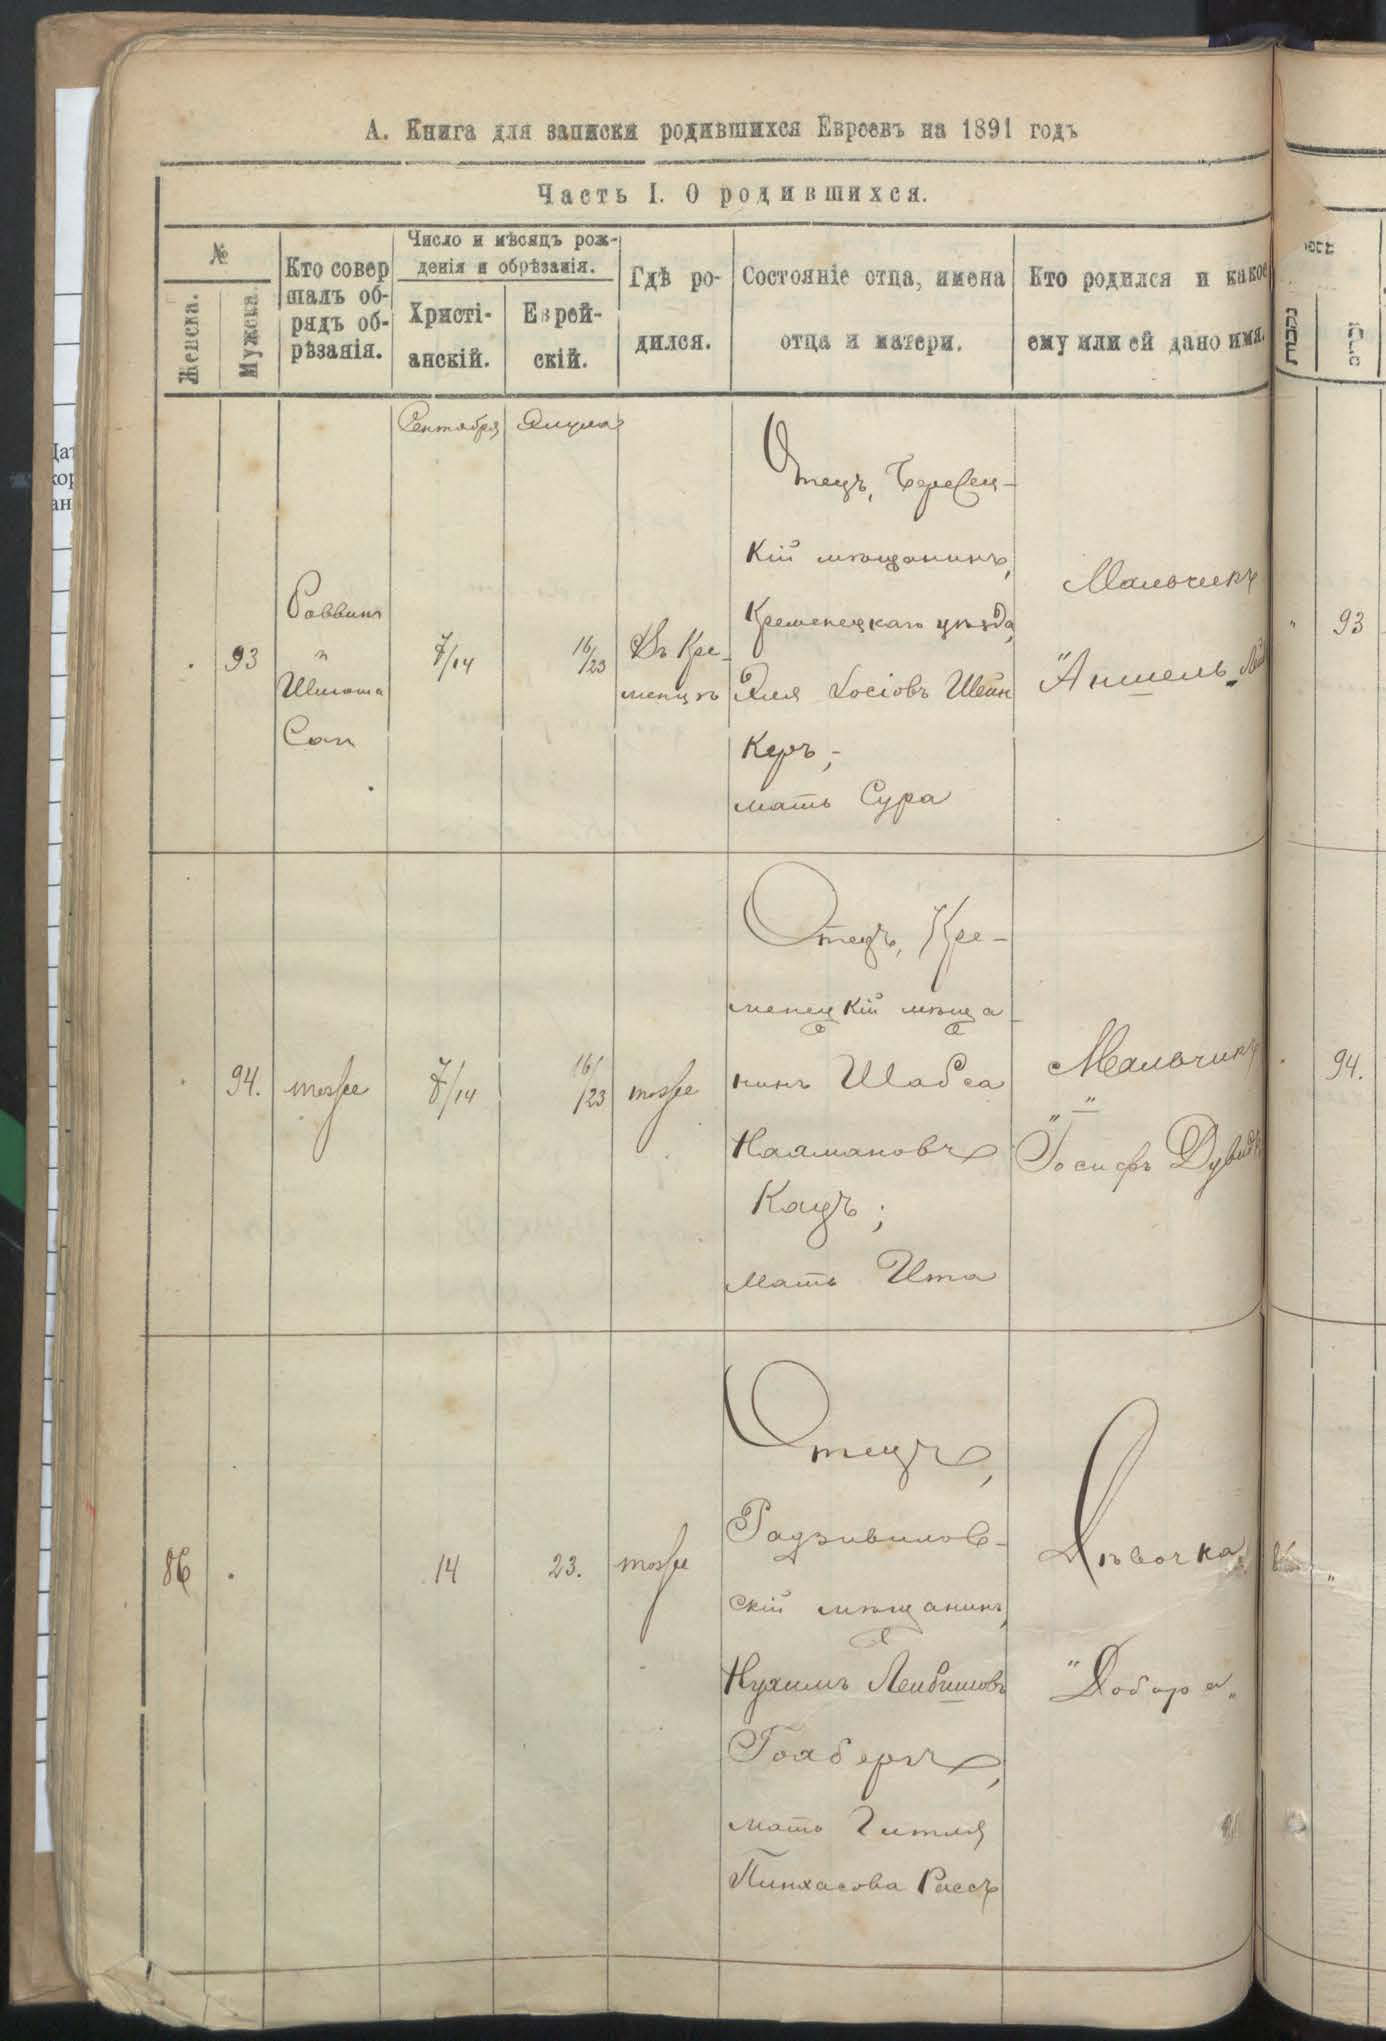 А. Книга для записки родившихся Евреевъ на 1891 годъ
Часть I. О родившихся.
№
Женска.
Мужска.
Кто совер
шалъ об-
рядъ об-
рѣзанія.
Число и мѣсяцъ рож-
денія и обрѣзанія.
Христі-
анскій.
Еврей-
скій.
Гдѣ ро-
дился.
Состояніе отца, имена
отца и матери.
Кто родился и какое
ему или ей дано имя.
נקבות
זכרים
Сентября
Элула
93
Раввинъ
"
7/14
16/23
Въ Кре-
менцѣ
Отецъ,
кій мѣщанинъ,
Кременецкаго уѣзда,
Эля Іосіовъ Шейн
керъ;
мать Сура
Мальчикъ
"Аншель
93
94.
тоже
7/14
16/23
тоже
Отецъ, Кре-
менецкій мѣща-
нинъ Шабса
Кац;
мать Ита
Мальчикъ
"Іосифъ Дувидъ
94.
86
14
23.
тоже
Отецъ,
Радзивилов-
скій мѣщанинъ,
Нухимъ Лейбишовъ
мать Гитля
Пинхасова
Дѣвочка
86